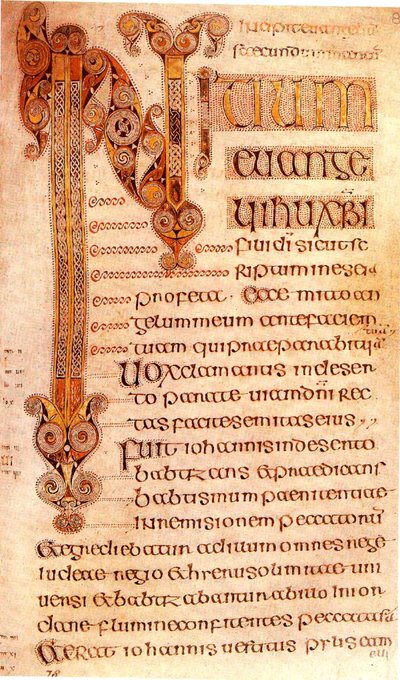 INITIUM
EUANGE
LII IHU XPI
FILII DI SICUT SC
RIPTUM IN ESEIA
profeta · Ecce mitto an
gelum meum ante faciem
tuam qui praeparabit uiā
Uox clamantis in deser
to parate uiam dni rec
tas facite semitas eius
Fuit iohannis in deserto
babtizans & praedicans
babtismum paenitentiae
in remisionem peccatorū
& egrediebatur ad illum omnes
iudeae regio & hierusolimitae uni
uersi & babtizabantur ab illo in ior
dane flumine confitentes peccata sua
& erat iohannis uestitus pilis cam
eli